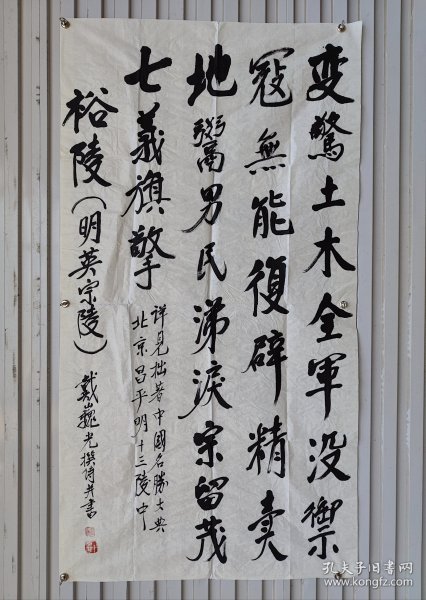 变驚土木全軍没禦
寇無能復辟精賣
地鬻男民涕淚宗留茂
七義旗擎
詳見拙著中國名勝大典
北京昌平明十三陵中
裕陵(明英宗陵)
戴巍光撰诗并書
孔夫子旧书网
www.kongfz.com